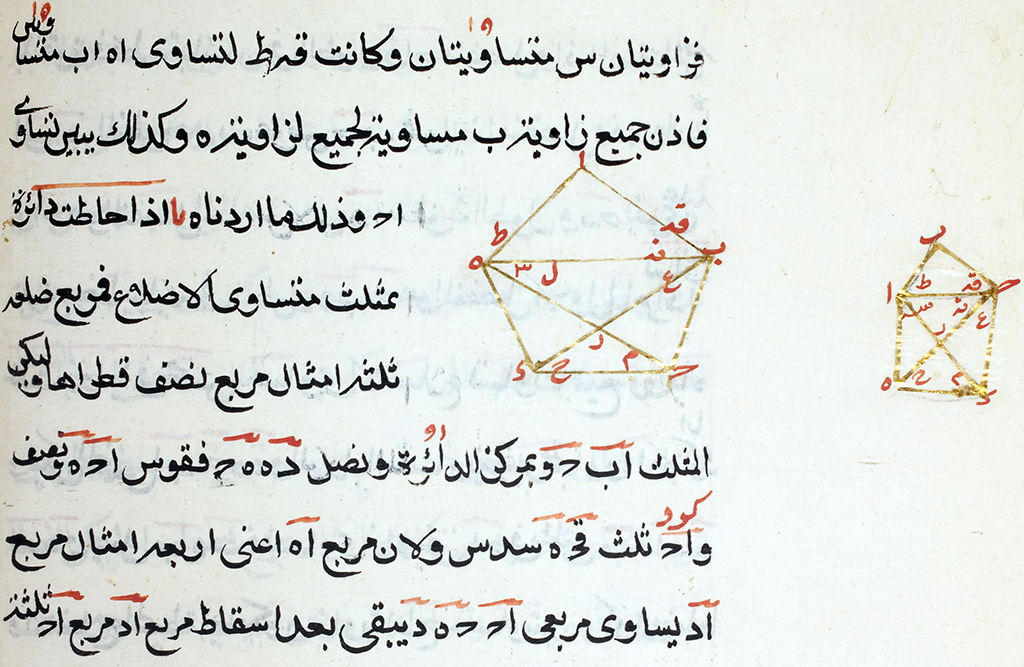 فزاويتان س متساويتان وكانت قه ط لتساوى اه اب متساويتين
فاذن جميع زاوية ب مساوية لجميع لزاوية ه وكذلك يبين تساوى
ا ح وذلك ما اردناه يا اذا احاطت دائرة
بمثلث متساوى الاضلاع فمربع ضلعه
ثلثة امثال مربع نصف قطرها وليكن
المثلث اب ح ومركز الدائرة د ونصل د ه ه ح فقوس ا ح ه نصف
و ا ح ثلث ح ه سدس ولان مربع اه اعنى اربعة امثال مربع
اد يساوى مربعى ا ح ح ه يبقى بعد اسقاط مربع اد مربع ا ح ثلثة
ا
قه
ط
ب
ه
س
ل
ع
ر
م
ح
ح
ء
ب
ا
ط
قه
ح
س
ع
ر
ه
ح
م
ء